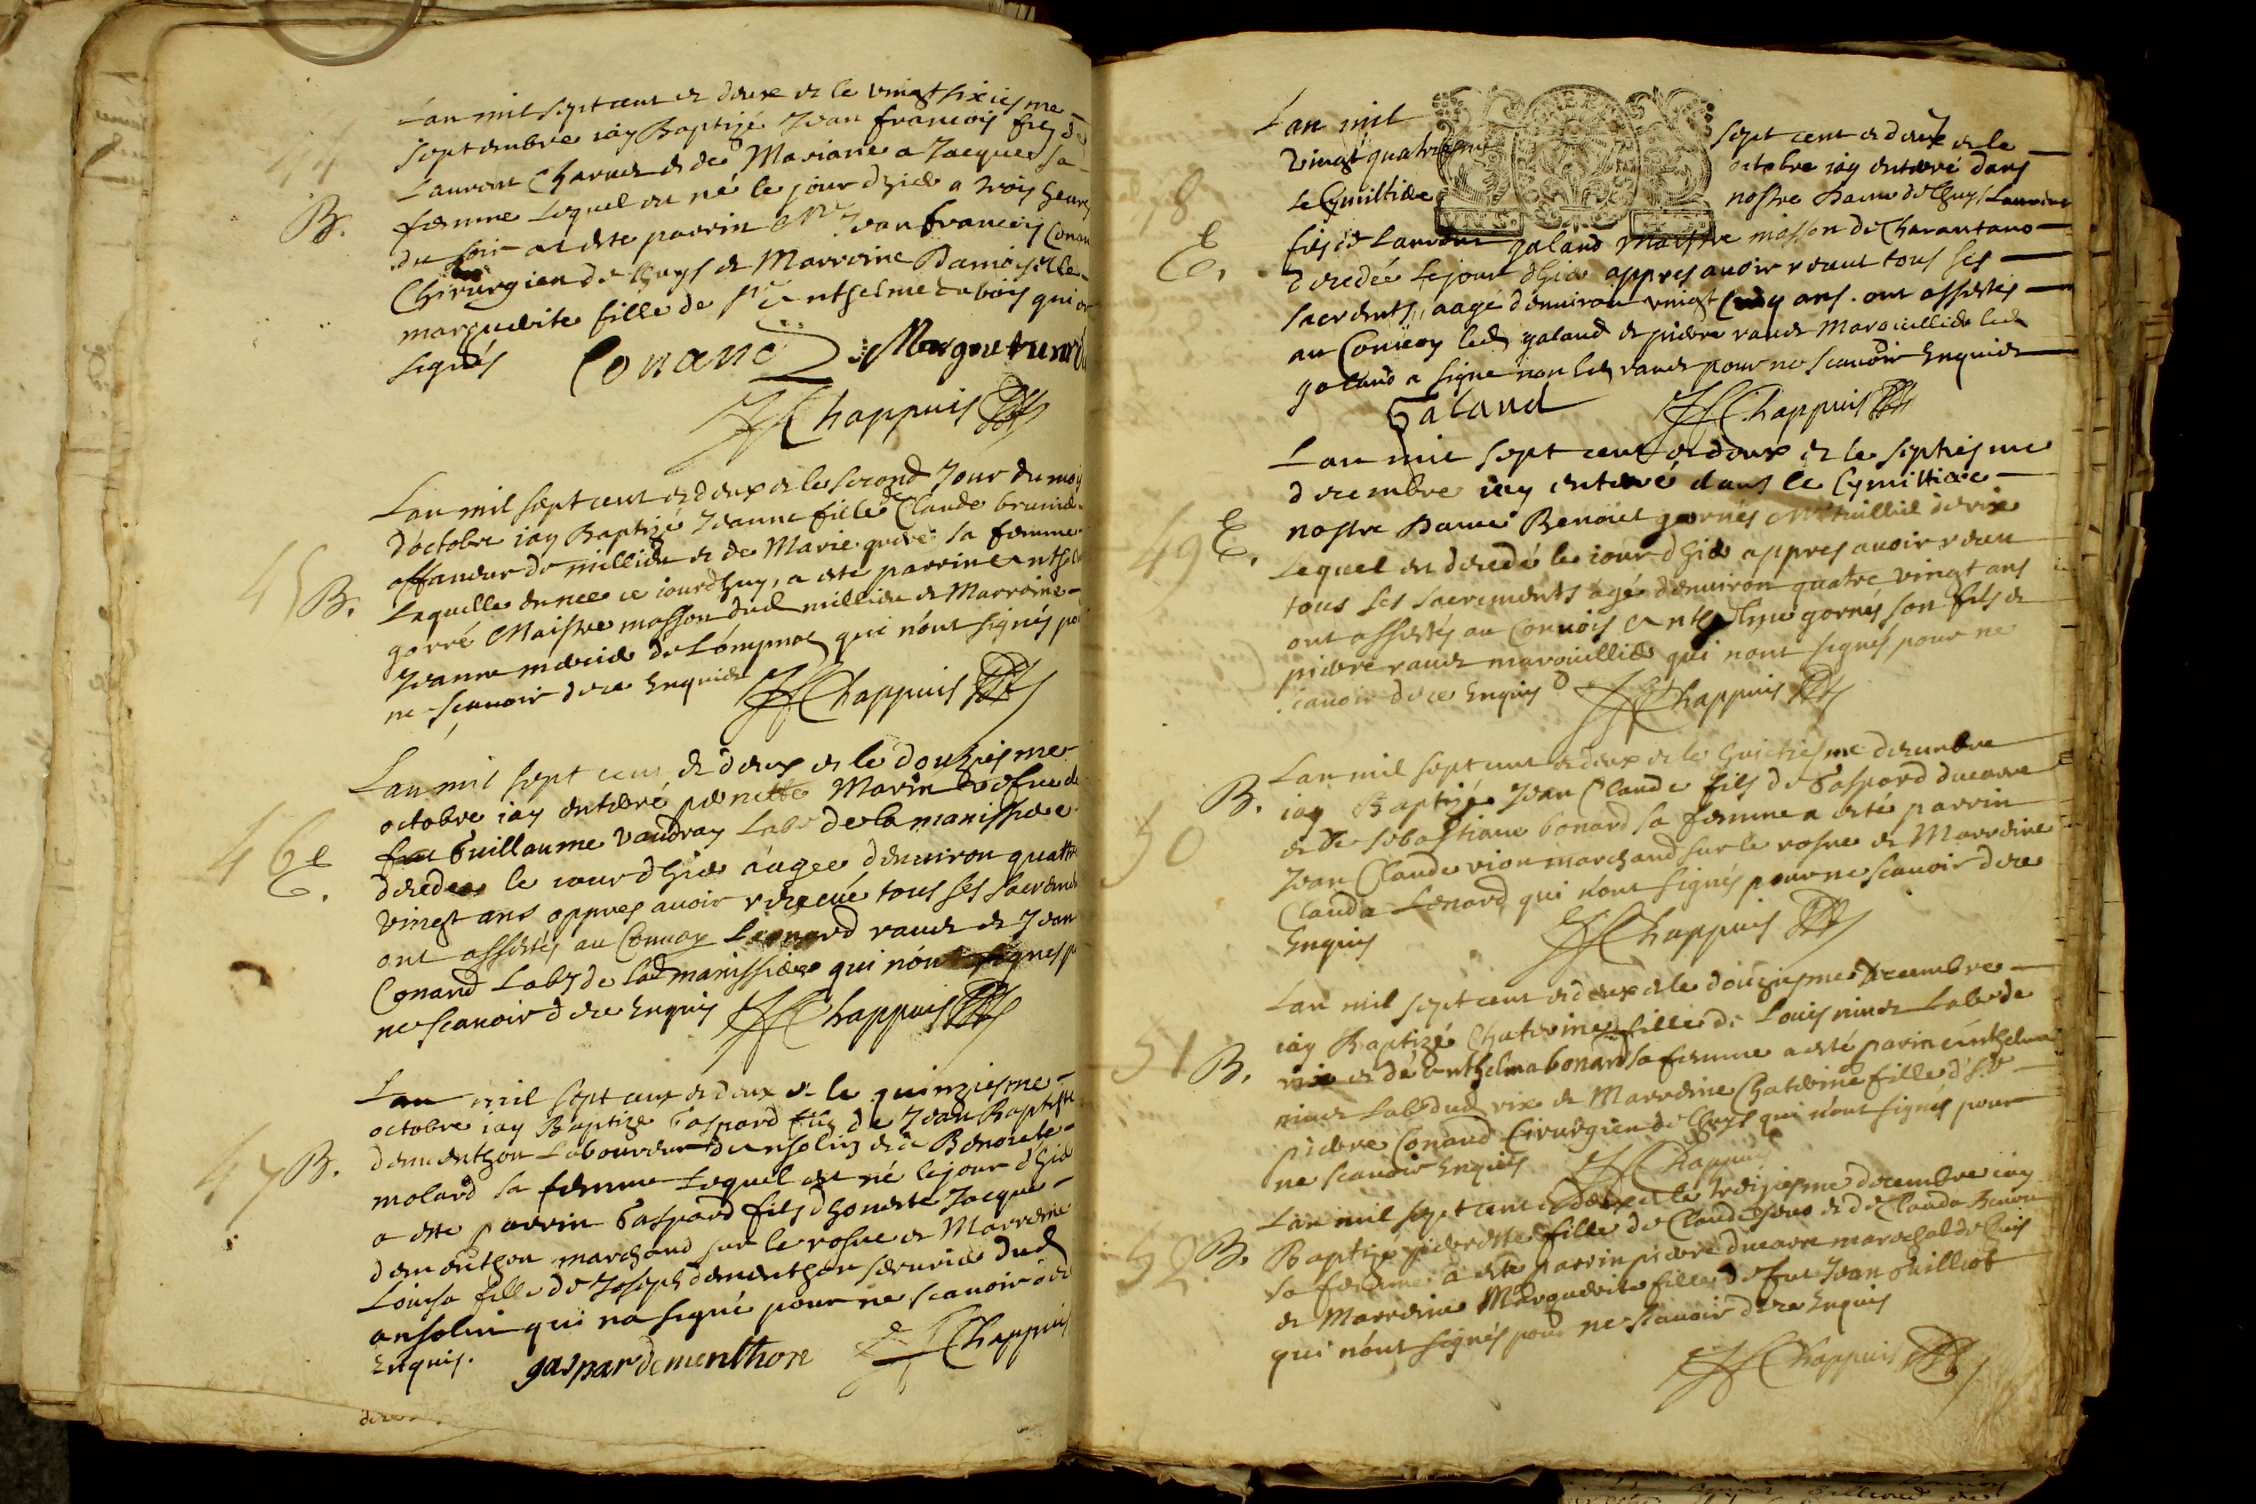 44
L'an mil sept cent et deux et le vingt sixiesme
B.
septembre iay Baptizé Jean francois fils de
Laurent et de Mariane a Jacques sa
femme Lequel est né le jour d'hier a trois heures
du soir a esté parrin Mre Jean francois Conand
Chirurgien de lhuys et Marreine Damoiselle
marguerite fille de sr Anthelme dubois qui ont
signés Conand Margueritte
Chappuis
45
L'an mil sept cent et deux et le second Jour du mois
B.
d'octobre iay Baptizé Jeanne fille de Claude brunier
affaneur de millieu et de Marie gurre sa femme
Laquelle est née ce iourdhuy, a esté parrin Anthelme
gorré Maistre masson dud millieu et Marreine
Jeanne mercier de Lompnas qui n'ont signés pour
ne scavoir de ce Enquis Chappuis
46
L'an mil sept cent et deux et le douziesme
E.
octobre iay enterré pernette Marin vefue de
feu Guillaume vaudray Labr de la manissiere
decedee le iour d'hier aagée d'enuiron quattre
vingt ans appres auoir receüe tous ses sacrements
ont assistés au Conuoy Leonard raud et Jean
Conand Labrs de lad manissiere qui n'ont signés pr
ne scavoir de ce Enquis Chappuis
47
L'an mil sept cent et deux et le quinziesme
B.
octobre iay Baptizé Gaspard fils de Jean Baptiste
dementhon Laboureur d'ansolin et de Benoite
molard sa femme Lequel est né le jour d'hier
a esté parrin Gaspard fils d'honeste Jacque
dementhon marchand sur le rosne et Marreine
Louise fille de Joseph dementhon serrurier dud
ansolin qui n'a signé pour ne scavoir de ce
Enquis. gaspar dementhon Chappuis
48
L'an mil sept cent et deux et le
vingt quatriesme octobre iay enterré dans
E.
le Cymitiere nostre Dame de lhuys Laurent
fils de Laurent galand Maistre masson de Charantano
decedée le jour d'hier appres auoir receut tous ses
sacrents, aagé d'enuiron vingt Cinq ans. ont assistés
au Conuoy led galand et pierre raud Marguillier led
galand a signé non led raud pour ne scavoir Enquis
Galand Chappuis
49
L'an mil sept cent et deux et le septiesme
E.
decembre iay enterré dans le Cymittiere
nostre Dame Benoict gornés de rix
Lequel est decedé le iour d'hier appres auoir receu
tous ses sacrements agé d'enuiron quatre vingt ans
ont assistés au Conuois Anthelme gornés son fils et
pierre raud marguillier qui n'ont signés pour ne
scavoir de ce Enquis Chappuis
50
L'an mil sept cent et deux et le huictiesme decembre
B.
iay Baptizé Jean Claude fils de Gaspard ducarre
et de sebastiane bonard sa femme a esté parrin
Jean Claude vion marchand sur le rosne et Marreine
Clauda Lenard qui n'ont signés pour ne scavoir de ce
Enquis Chappuis
51
L'an mil sept cent et deux et le douziesme Decembre
B.
iay Baptizé Chaterine fille de Louis niuet Labr de
rix et de Anthelma bonard sa femme a esté parin Anthelme
niuet Labr dud rix et Marreine Chaterine fille de sr
pierre Conand Cirurgien de lhuys qui n'ont signés pour
ne scavoir Enquis Chappuis
52
L'an mil sept cent et deux et le treiziesme decembre iay
B.
Baptizé pierrette fille de Claude et de Clauda
sa femme a esté parrin pierre ducarre marechal de lhuis
et Marreine Marguerite fille de feu Jean Guilliot
qui n'ont signés pour ne scavoir de ce Enquis
Chappuis